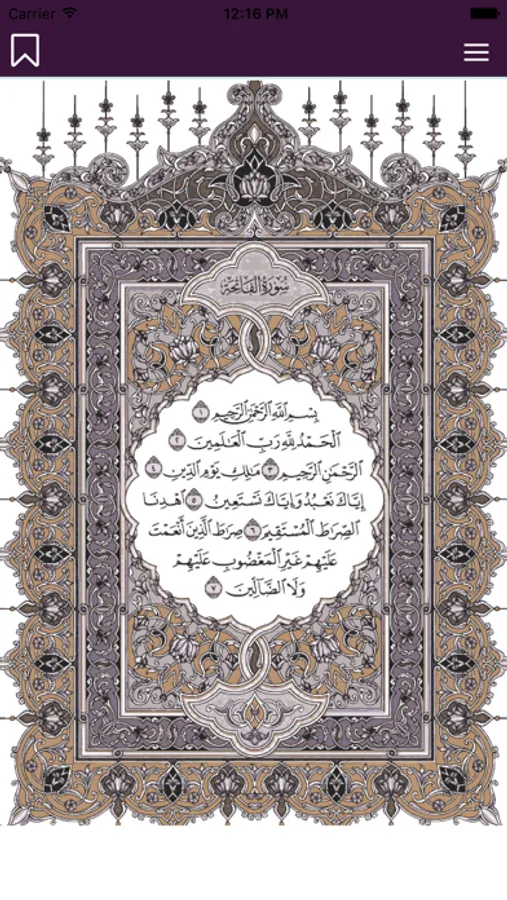 Carrier 12:16 PM
سُورَةُ الفَاتِحَة
بِسْمِ اللَّهِ الرَّحْمَٰنِ الرَّحِيمِ ١
الْحَمْدُ لِلَّهِ رَبِّ الْعَالَمِينَ ٢
الرَّحْمَٰنِ الرَّحِيمِ ٣ مَالِكِ يَوْمِ الدِّينِ ٤
إِيَّاكَ نَعْبُدُ وَإِيَّاكَ نَسْتَعِينُ ٥ اهْدِنَا
الصِّرَاطَ الْمُسْتَقِيمَ ٦ صِرَاطَ الَّذِينَ أَنْعَمْتَ
عَلَيْهِمْ غَيْرِ الْمَغْضُوبِ عَلَيْهِمْ
وَلَا الضَّالِّينَ ٧